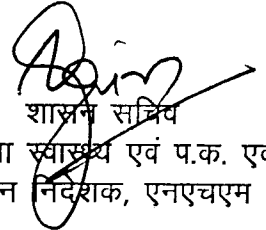 शासन सचिव
स्वास्थ्य एवं प.क. एव
न निदेशक, एनएचएम